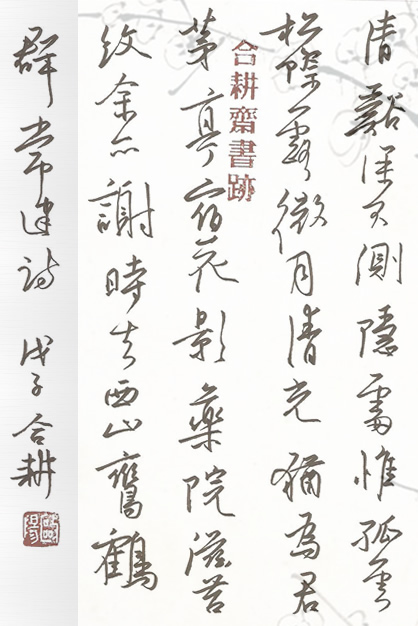 清谿深不測隱處惟孤雲
松際露微月清光猶為君
茅亭宿花影藥院滋苔
紋余亦謝時去西山鸞鶴
群 常建詩 戊子 合耕
合耕齋書跡